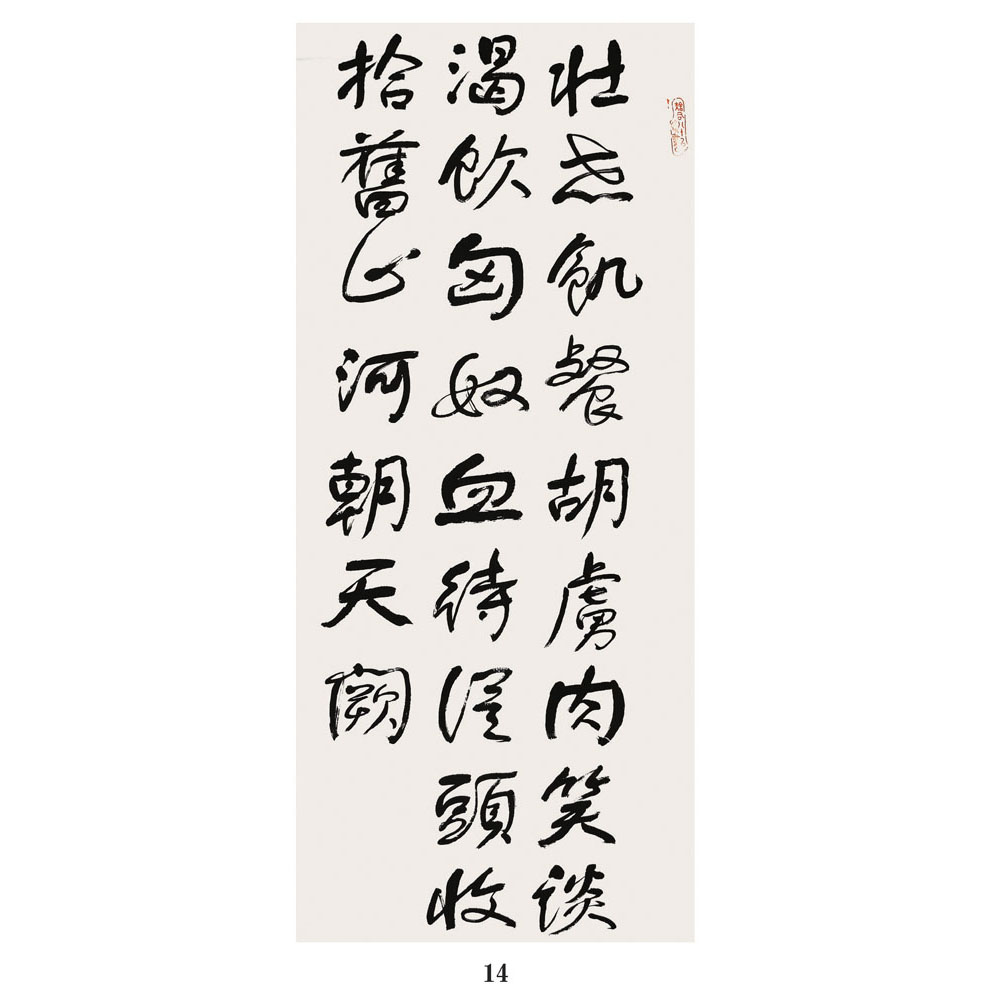 壮志飢餐胡虜肉笑谈
渴飲匈奴血待從頭收
拾舊山河朝天闕
14